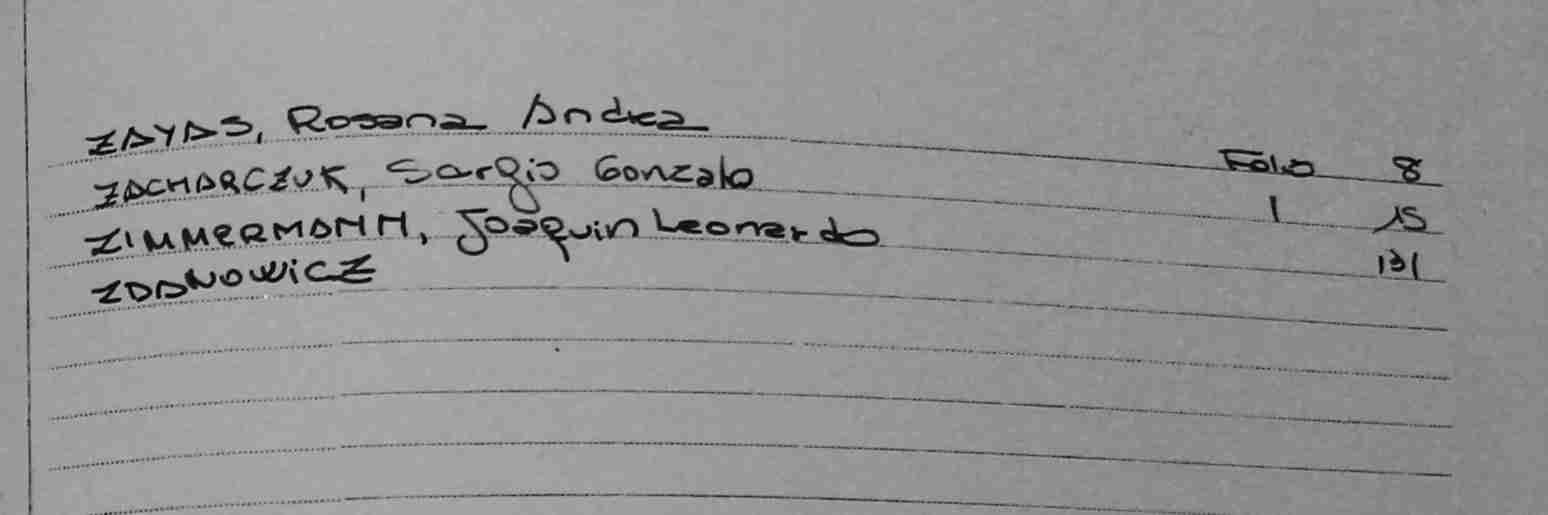 ZAYAS, Rosana Andrea Folio 8
ZACHARCZUK, Sergio Gonzalo 1 15
ZIMMERMANN, Joaquin Leonardo 131
ZDANOWICZ